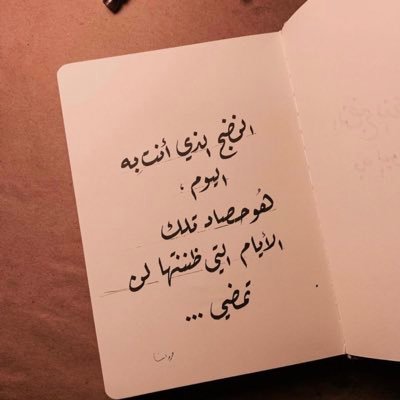 النضج الذي أنت به
اليوم ،
هُو حصاد تلك
الأيام التي ظننتها لن
تمضي ...